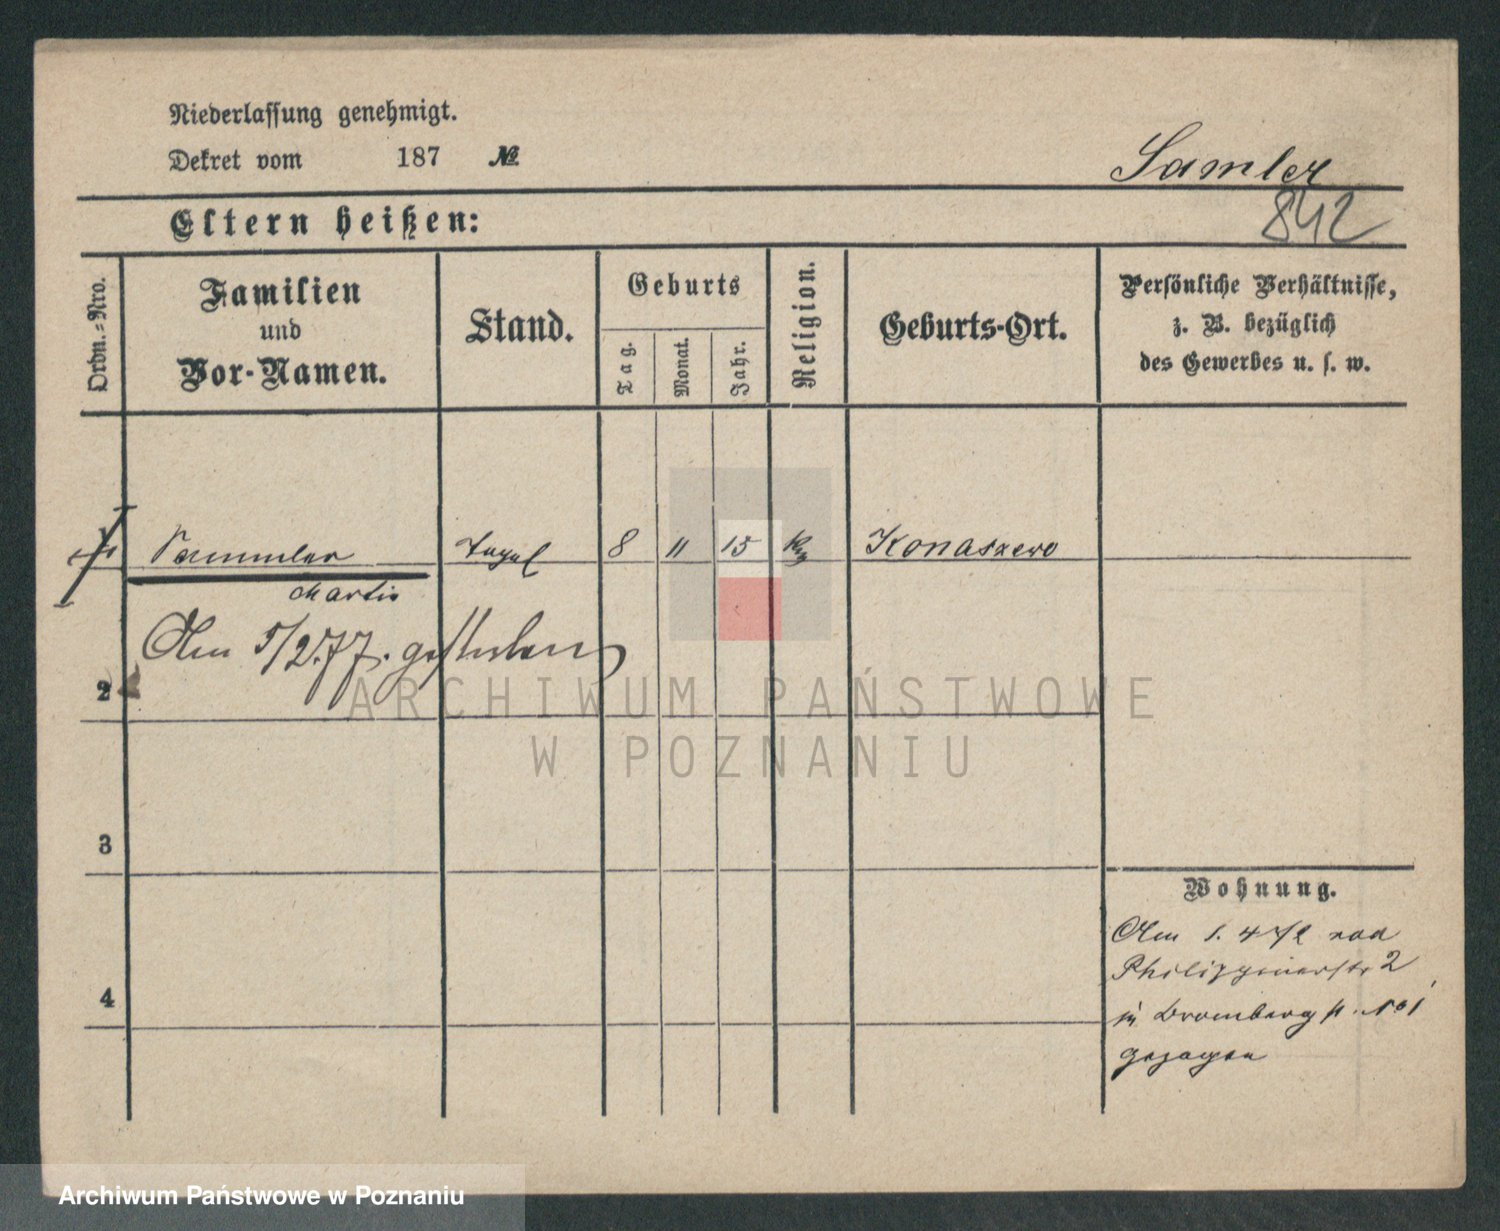 Niederlassung genehmigt.
Dekret vom 187 №
Samler
842
Eltern heißen:
Ordn.-Nro.
Familien
und
Vor-Namen.
Stand.
Geburts
Tag.
Monat.
Jahr.
Religion.
Geburts-Ort.
Persönliche Verhältnisse,
z. B. bezüglich
des Gewerbes u. s. w.
1 Sammler 8 11 15 Konaszewo
Martin
Am 5/2.77. gestorben
2
ARCHIWUM PAŃSTWOWE
W POZNANIU
3
Wohnung.
Am 1. 4 72 von
Philippinerstr 2
in Bromberg
4
gezogen
Archiwum Państwowe w Poznaniu